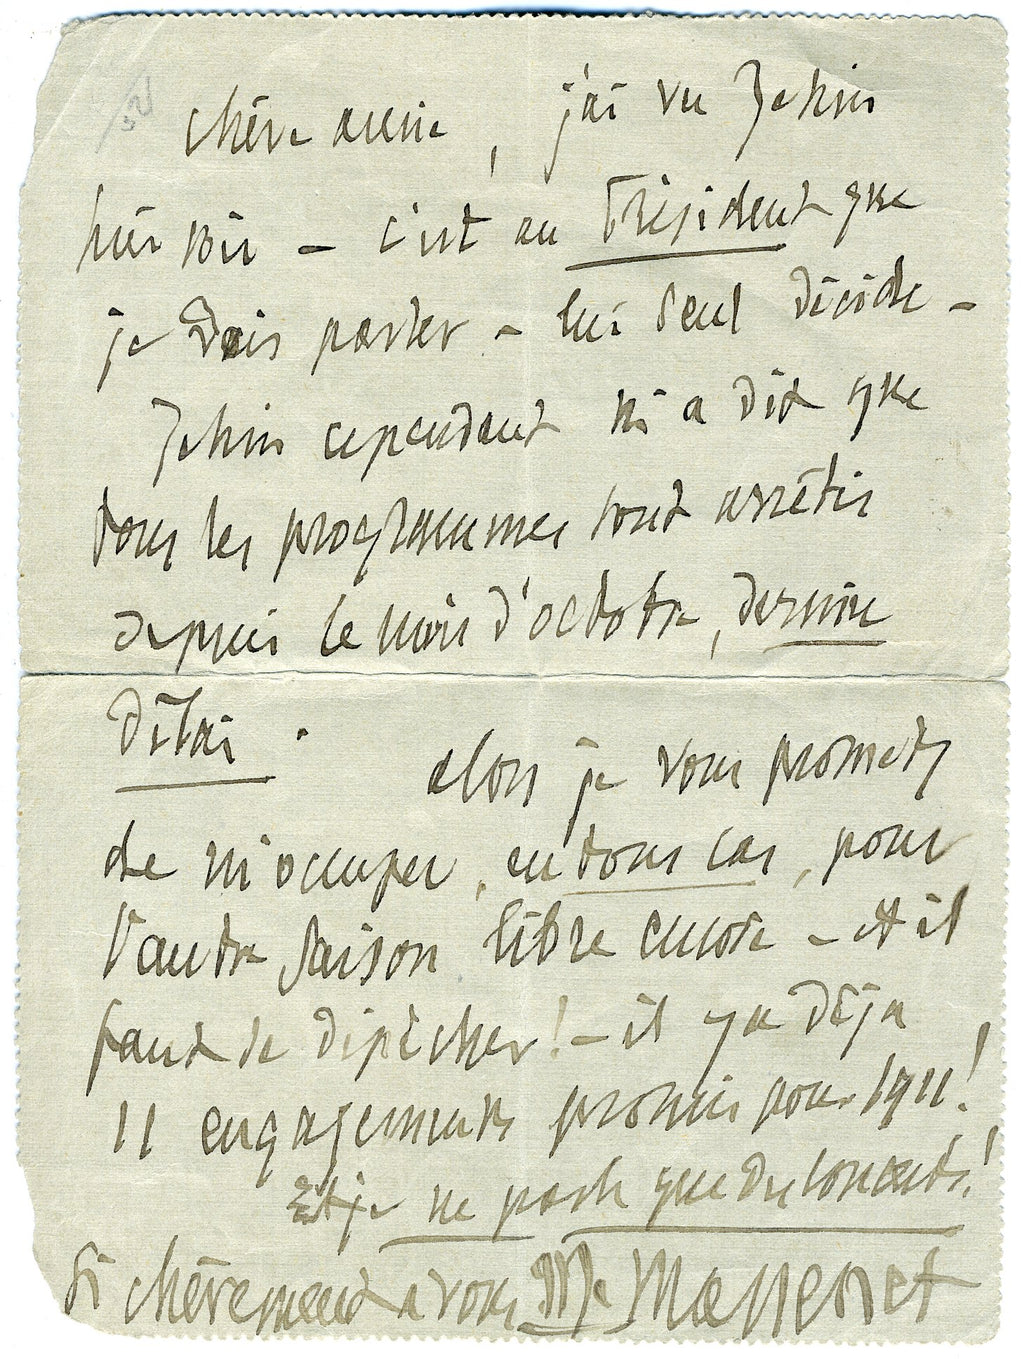 chère amie, j'ai vu Jehin
hier soir – c'est au Président que
je dois parler – lui seul décide –
Jehin cependant m'a dit que
tous les programmes sont arrêtés
depuis le mois d'octobre, dernier
délai.
alors je vous promets
de m'occuper, en tous cas, pour
l'autre saison libre encore – et il
faut se dépêcher! – il y a déjà
11 engagements promis pour 1911!
Et je ne parle que des concerts!
Si chèrement à vous Massenet